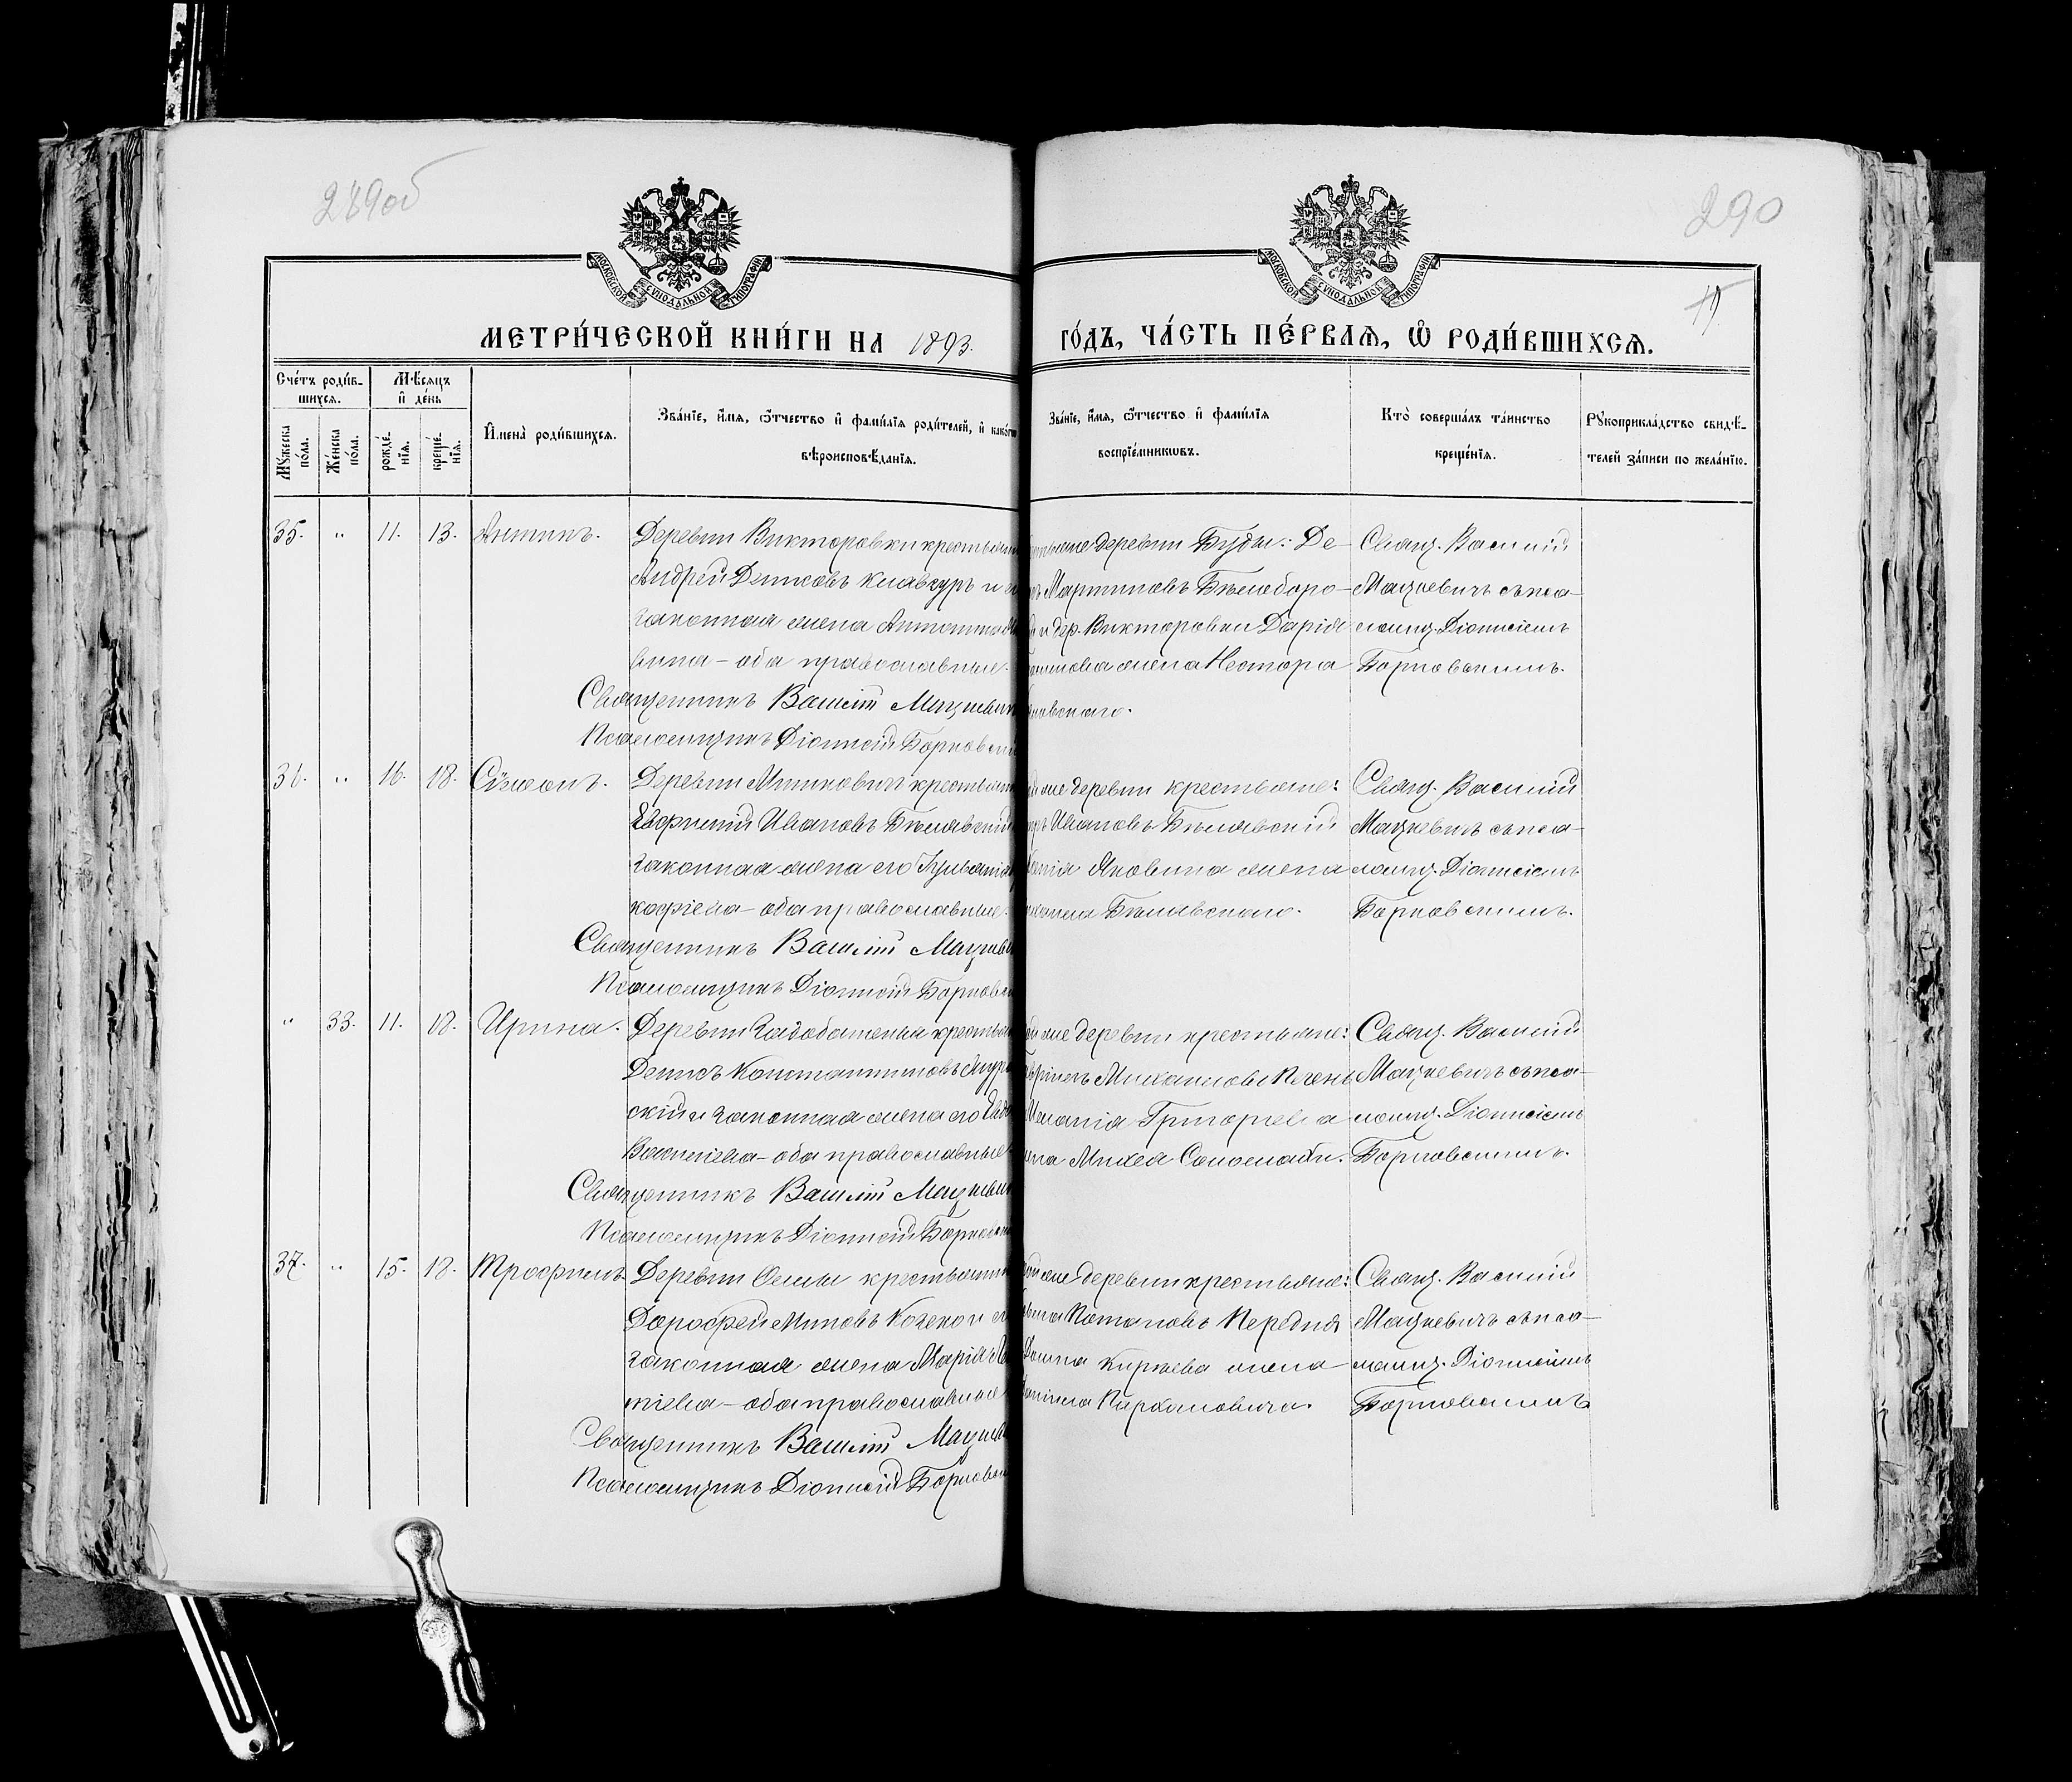 289об
290
19
МОСКОВСКОЙ СѴНОДАЛЬНОЙ ТИПОГРАФІИ
МОСКОВСКОЙ СѴНОДАЛЬНОЙ ТИПОГРАФІИ
МЕТРИ́ЧЕСКОЙ КНИ́ГИ НА 1893.
ГО́ДЪ, ЧА́СТЬ ПЕ́РВАѦ, Ѡ РОДИ́ВШИХСѦ.
Сче́тъ роди́в-
шихсѧ.
Мѣ́сяцъ
и де́нь
Мꙋ́жеска по́ла.
Же́нска по́ла.
рожде́-
нїѧ.
креще́-
нїѧ.
Имена̀ роди́вшихсѧ.
Зва́нїе, и́мѧ, ѻ́тчество и фами́лїѧ роди́телей, и како́гѡ
вѣроисповѣ́данїѧ.
Зва́нїе, и́мѧ, ѻ́тчество и фами́лїѧ
воспрїе́мникѡвъ.
Кто̀ соверша́лъ та́инство
креще́нїѧ.
Рꙋкоприкла́дство свидѣ́-
телей за́писи по жела́нїю.
35. " 11. 13. Антипъ.
Деревни Викторовки крестьянин
Андрей Денисовъ Клавсуръ и
законная жена Антонина
вина – оба православные.
Священникъ Василій Мацкевич
Псаломщикъ Діонисій Борковскі
деревни Буды: Де-
Мартиновъ Бѣлоборо-
и дер. Викторовки Дарія
жена Нестора
Свящ. Василій
Мацкевичъ съ пса-
ломщ. Діонисіемъ
Борковскимъ.
36. " 16. 18. Сѵмеонъ.
Деревни Митковичи крестьянин
Георгній Ивановъ Бѣлявскій
законная жена его Іуліанія
кофіева – оба православные.
Священникъ Василій Мацкеви
Псаломщикъ Діонисій Борковск
же деревни крестьяне:
Ивановъ Бѣлявскій
Яковина жена
Бѣлявскаго.
Свящ. Василій
Мацкевичъ съ пса-
ломщ. Діонисіемъ
Борковскимъ.
" 33. 11. 18. Ирина.
Деревни крестьян
Денисъ Константиновъ
скій и законная жена его
Василіева – оба православные
Священникъ Василій Мацкевич
Псаломщикъ Діонисій Борковск
же деревни крестьяне:
Михаиловъ
Григорьева
Михея
Свящ. Василій
Мацкевичъ съ пса-
ломщ. Діонисіемъ
Борковскимъ.
37. " 15. 18. Трофимъ.
Деревни крестьянин
Дорофей Миновъ и
законная жена Марія
тіева – оба православные
Священникъ Василій Мацкев
Псаломщикъ Діонисій Борковск
же деревни крестьяне:
Потаповъ Передня
Домна Кирѣева жена
Пархамовича.
Свящ. Василій
Мацкевичъ съ пса-
ломщ. Діонисіемъ
Борковскимъ